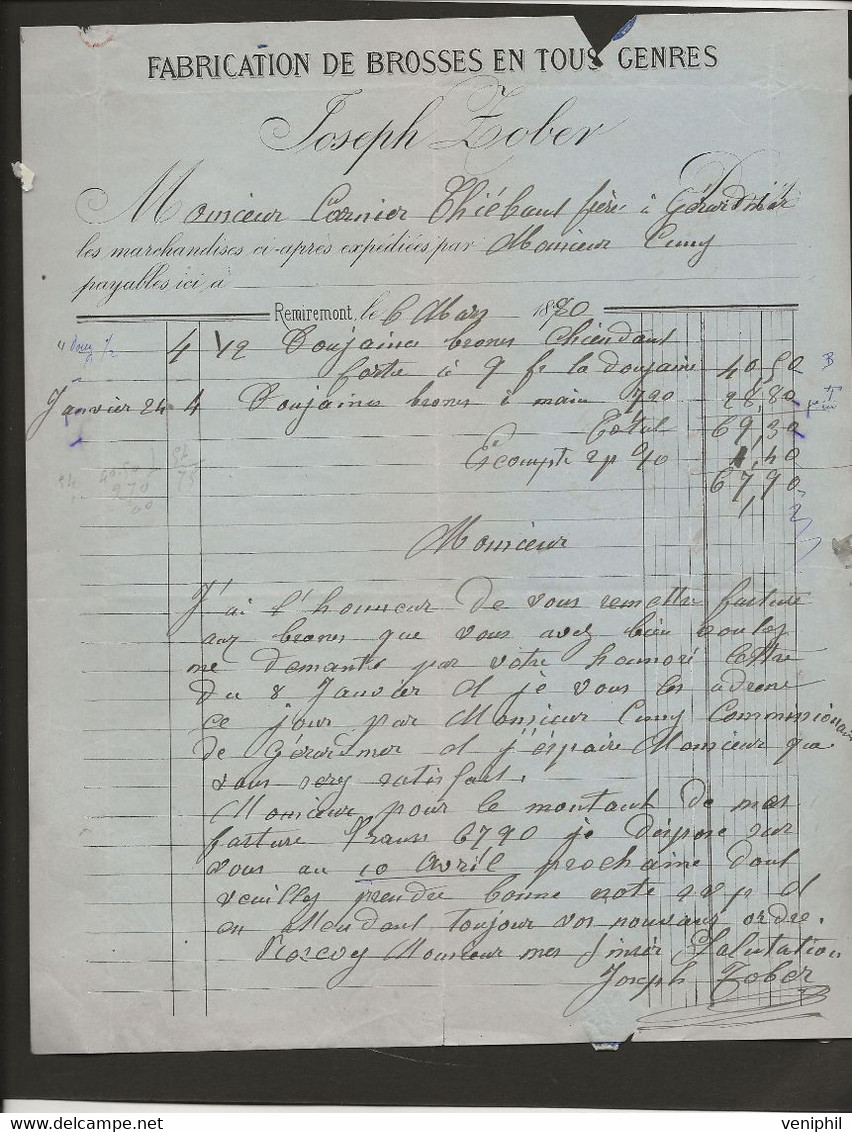 FABRICATION DE BROSSES EN TOUS GENRES
Joseph Zober
Doit
Monsieur Cornier Thiébaut frère à Gérardmer
les marchandises ci-après expédiées par Monsieur Cuny
payables ici à
Remiremont, le 6 Mars 1880
4 1/2 Doujaine broses Chiendant
forte à 9 fr la Doujaine 40,50 B
Janvier 24 4 Doujaines broses à main 720 28,80
Total 69,30
Escompte 2 p % 1,40
67,90
Monsieur
J'ai l'honneur de vous remettre facture
aux broses que vous avez bien voulez
me demanté par votre honoré lettre
Du 8 Janvier et je vous les adrese
ce jour par Monsieur Cuny Commissionaire
de Gérardmer et j'éspaire Monsieur que
vous sery satisfait.
Monsieur pour le montant de mas
facture Frans 67,90 je dispose sur
vous au 10 Avril prochaine dont
veuilley prendre bonne note s v p et
en attendant toujour vos nouvaux ordre.
Recevey Monsieur mes sinsér Salutation
Joseph Zober
veniphil